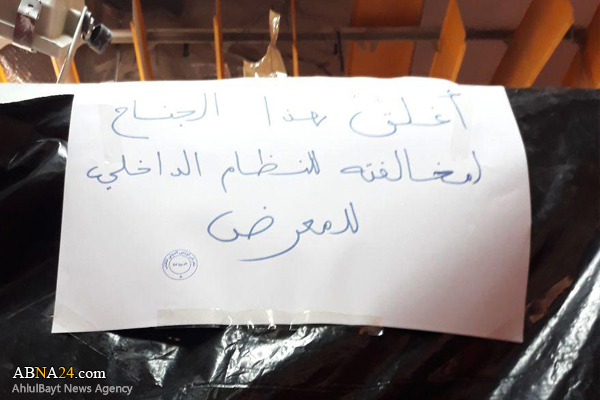 أغلق هذا الجناح
لمخالفته للنظام الداخلي
للمعرض
ABNA24.com
AhlulBayt News Agency